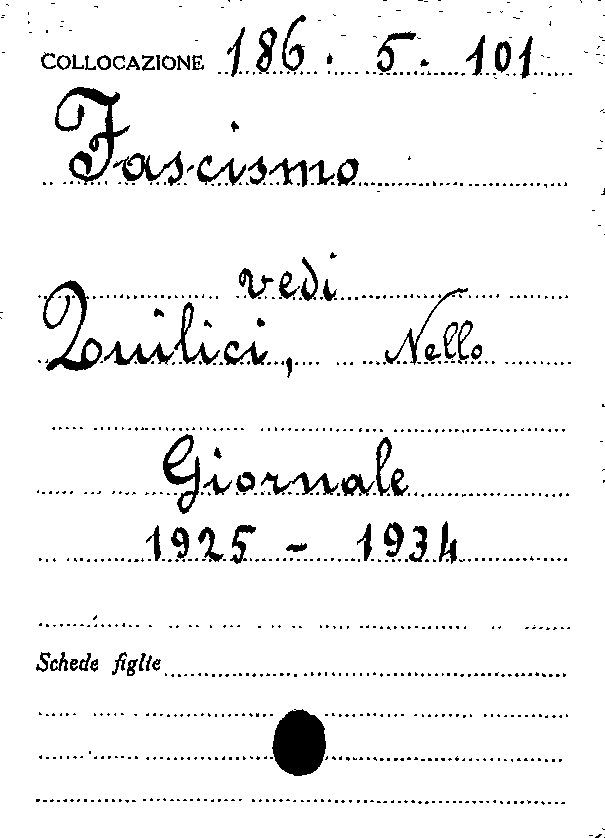 COLLOCAZIONE 186. 5. 101
Fascismo
vedi
Quilici, Nello
Giornale
1925 - 1934
Schede figlie